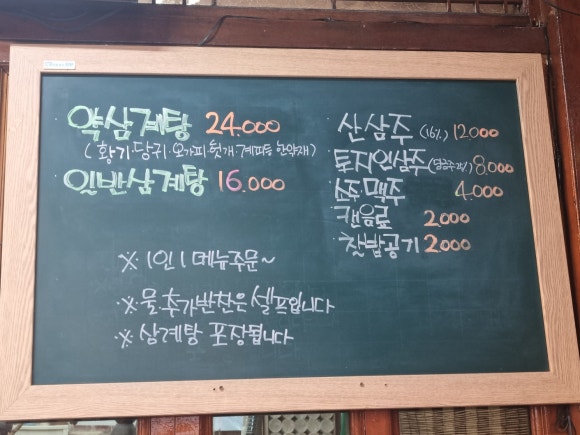 약삼계탕 24.000
(황기.당귀.오가피.헛개.계피등 한약재)
일반삼계탕 16.000
※ 1인 1메뉴주문~
※ 물.추가반찬은 셀프입니다
※ 삼계탕 포장됩니다
산삼주 (16%) 12.000
토지인삼주 8.000
소주 맥주 4.000
캔음료 2.000
찰밥공기 2.000